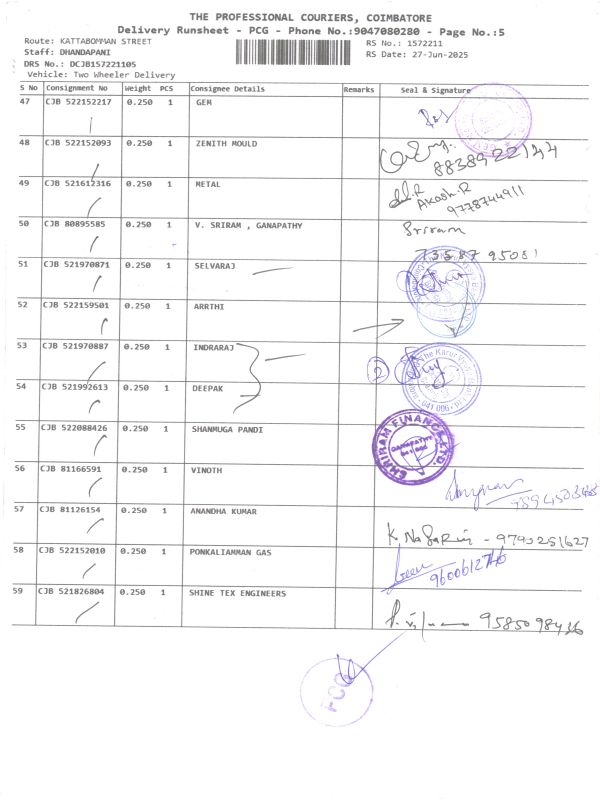 THE PROFESSIONAL COURIERS, COIMBATORE
Delivery Runsheet - PCG - Phone No.:9047080280 - Page No.:5
Route: KATTABOMMAN STREET RS No.: 1572211
Staff: DHANDAPANI RS Date: 27-Jun-2025
DRS No.: DCJB157221105
Vehicle: Two Wheeler Delivery
S No Consignment No Weight PCS Consignee Details Remarks Seal & Signature
47 CJB 522152217 0.250 1 GEM
48 CJB 522152093 0.250 1 ZENITH MOULD
8838922144
49 CJB 521612316 0.250 1 METAL
Akash.R
9778744911
50 CJB 80895585 0.250 1 V. SRIRAM , GANAPATHY Sriram
73587 95081
51 CJB 521970871 0.250 1 SELVARAJ
52 CJB 522159501 0.250 1 ARRTHI
53 CJB 521970887 0.250 1 INDRARAJ
The Karur Vysya
641 006
54 CJB 521992613 0.250 1 DEEPAK
55 CJB 522088426 0.250 1 SHANMUGA PANDI
SHRIRAM FINANCE LTD.
GANAPATHY
641 006
56 CJB 81166591 0.250 1 VINOTH
57 CJB 81126154 0.250 1 ANANDHA KUMAR
58 CJB 522152010 0.250 1 PONKALIAMMAN GAS
9600612746
59 CJB 521826804 0.250 1 SHINE TEX ENGINEERS
9585098436
PCG